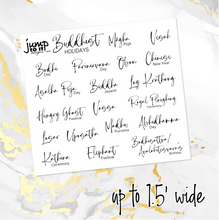 jump to it!
Buddhist HOLIDAYS
Magha Puja
Vesak
Bodhi Day
Parinirvana Day
Obon
Chinese New Year
Asalha Puja
Buddha
Loy Krathong
Hungry Ghost
Vassa
Royal Ploughing Ceremony
Losar
Uposatha
Madhu Purnima
Abhidhamma Day
Kathina Ceremony
Elephant Festival
Bodhisattva/ Avalokitesvaras Birthday
up to 1.5' wide